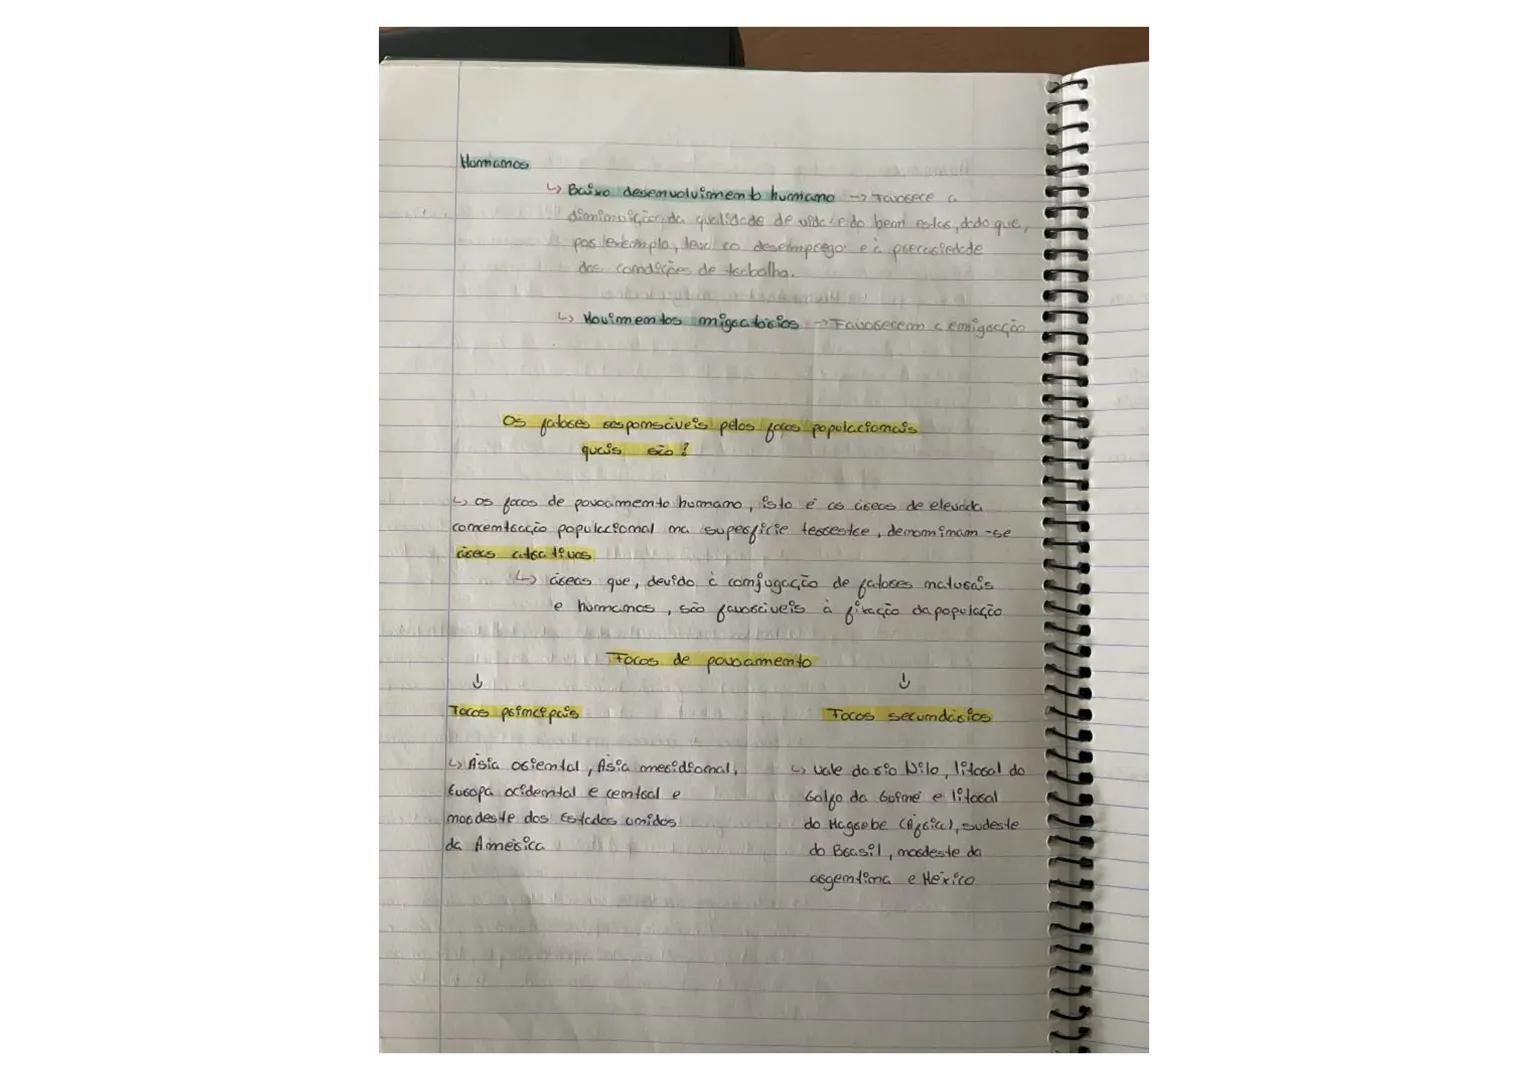 Humanos
↳ Baixo desenvolvimento humano → Favorece a
diminuição da qualidade de vida e do bem estar, dado que,
por exemplo, leva ao desemprego e à precariedade
das condições de trabalho.
↳ Movimentos migratórios → Favorecem a emigração
Os fatores responsáveis pelos focos populacionais
quais são?
↳ os focos de povoamento humano, isto é as áreas de elevada
concentração populacional na superfície terrestre, denominam-se
áreas atrativas
↳ áreas que, devido à conjugação de fatores naturais
e humanos, são favoráveis à fixação da população
Focos de povoamento
↓ ↓
Focos principais Focos secundários
↳ Ásia oriental, Ásia meridional, ↳ Vale do rio Nilo, litoral do
Europa ocidental e central e Golfo da Guiné e litoral
nordeste dos Estados unidos do Magrebe (África), sudeste
da América do Brasil, nordeste da
argentina e México